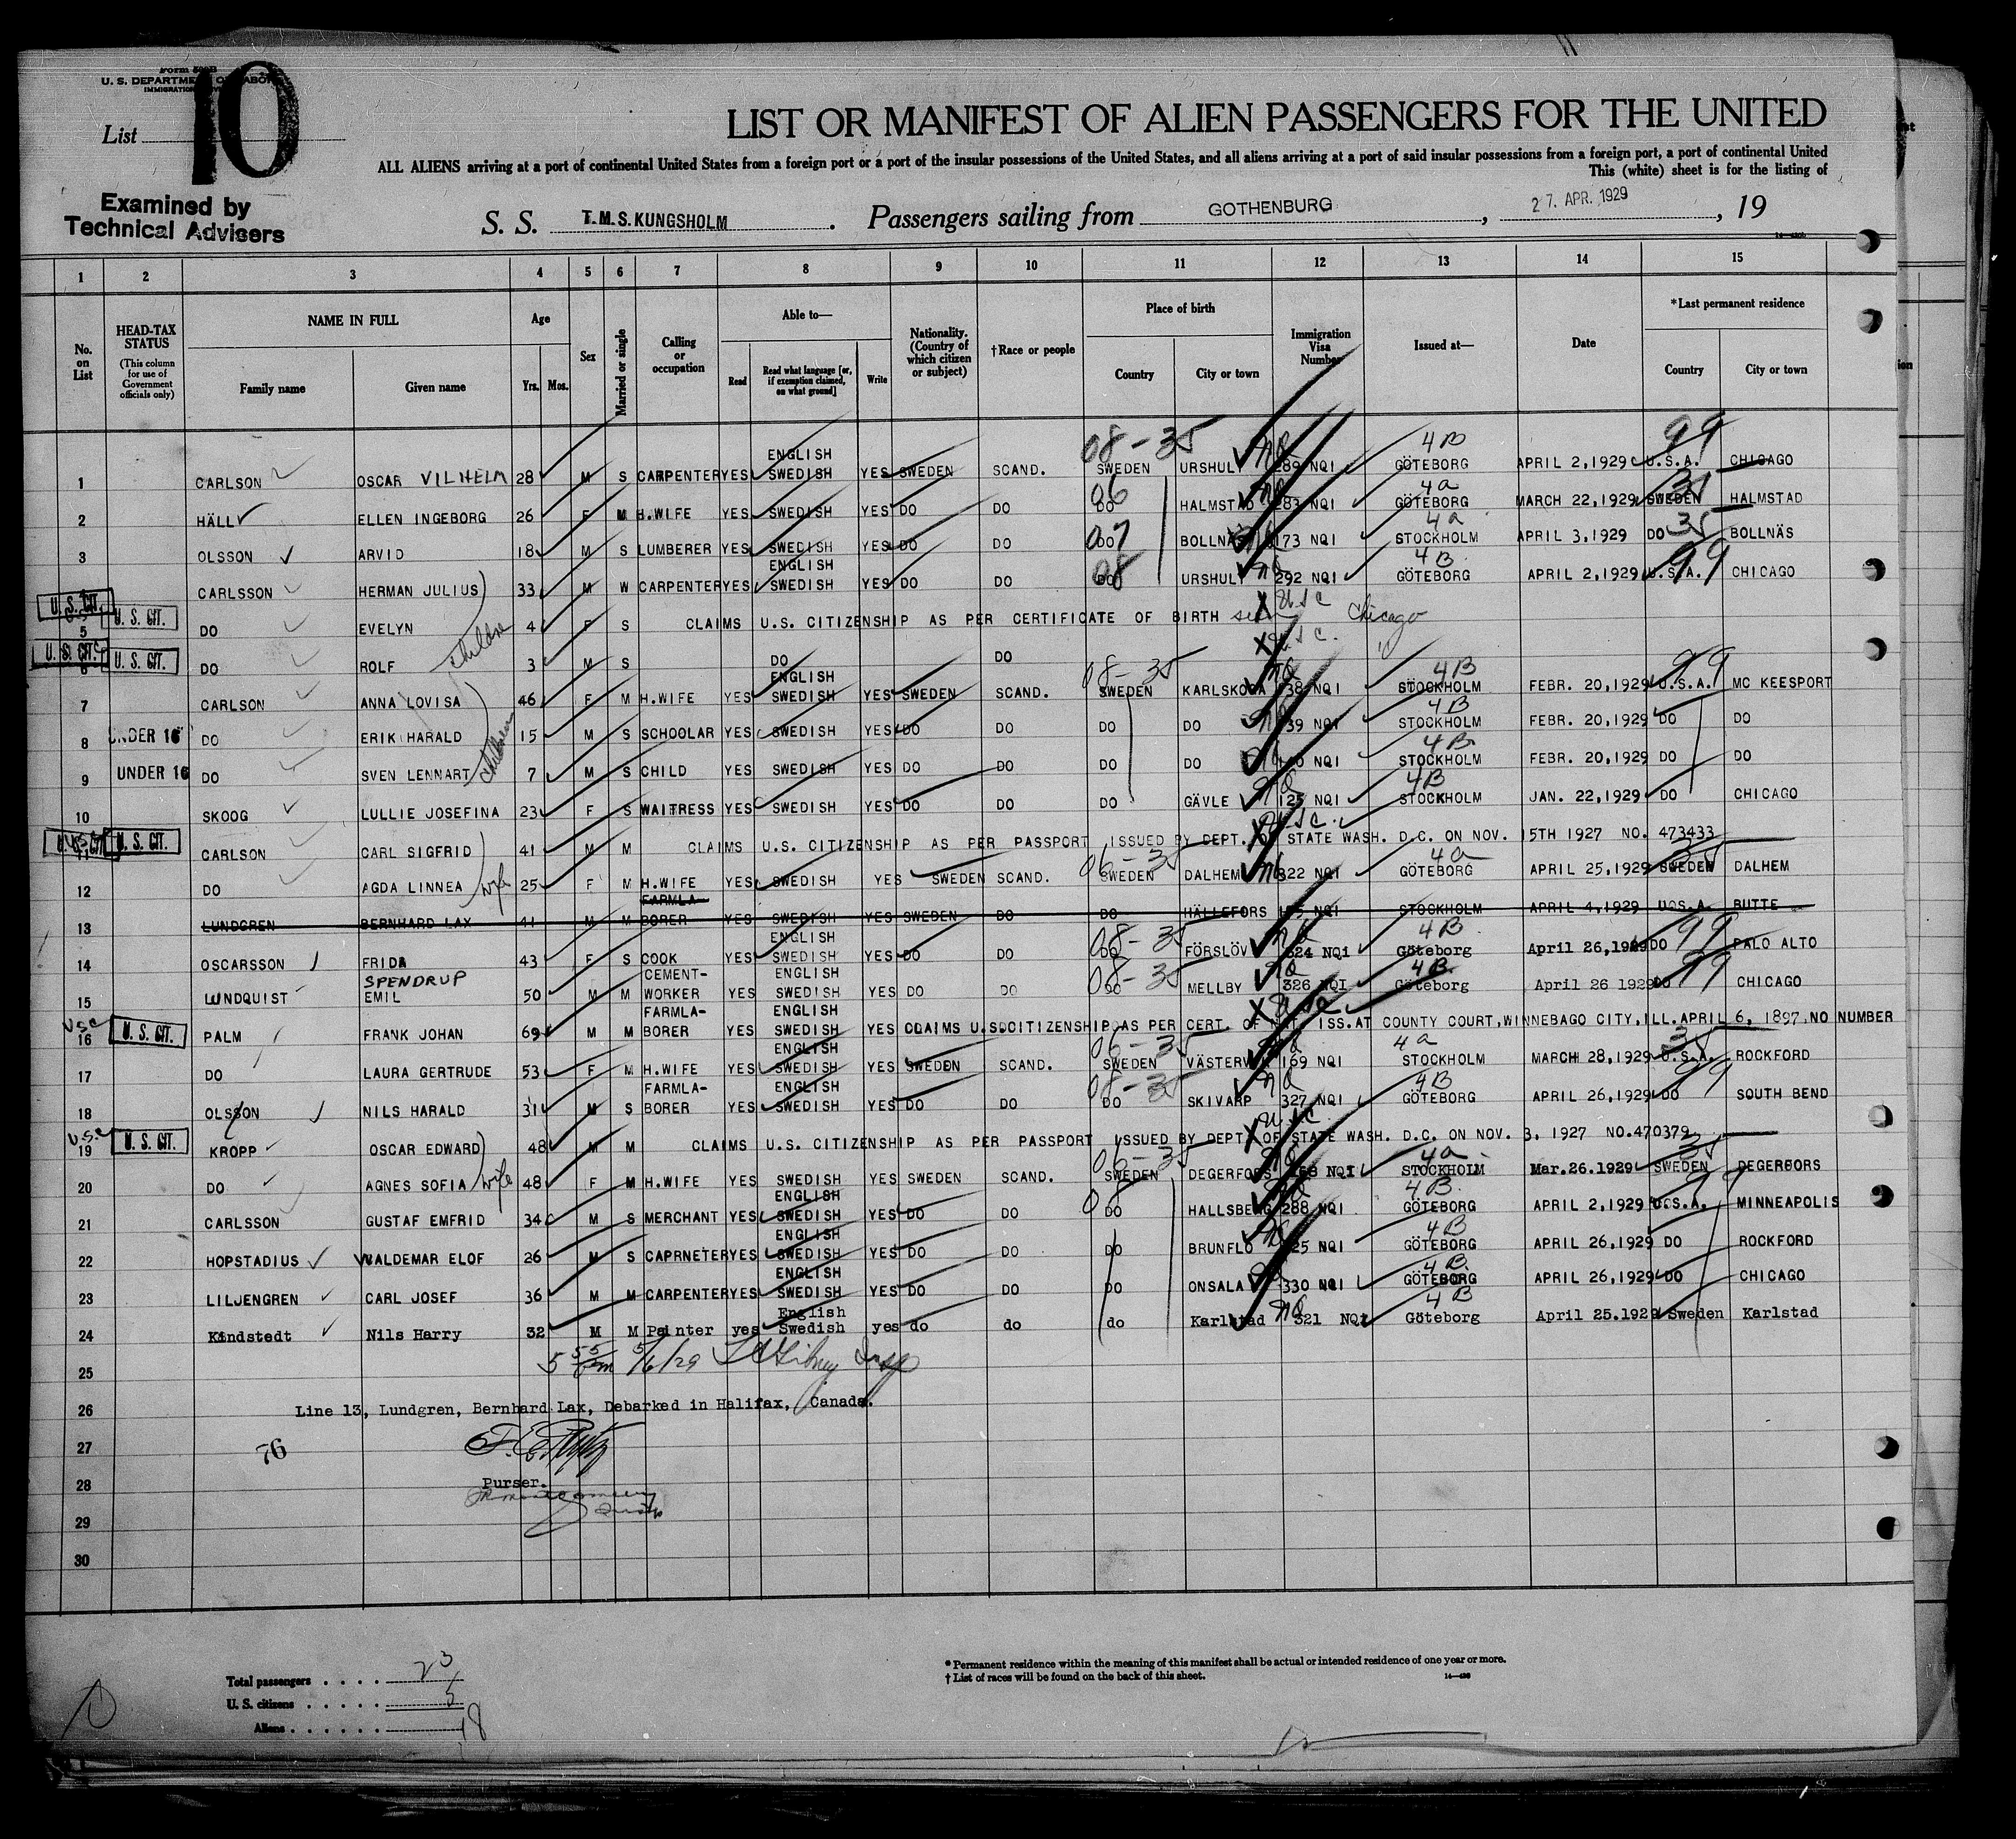 Form 500B
U. S. DEPARTMENT OF LABOR
IMMIGRATION
List 10
LIST OR MANIFEST OF ALIEN PASSENGERS FOR THE UNITED
ALL ALIENS arriving at a port of continental United States from a foreign port or a port of the insular possessions of the United States, and all aliens arriving at a port of said insular possessions from a foreign port, a port of continental United
This (white) sheet is for the listing of
Examined by
Technical Advisers
S. S. T.M.S. KUNGSHOLM. Passengers sailing from GOTHENBURG, 27. APR. 1929, 19
1 2 3 4 5 6 7 8 9 10 11 12 13 14 15
No. on List
HEAD-TAX STATUS (This column for use of Government officials only)
NAME IN FULL Family name Given name
Age Yrs. Mos.
Sex
Married or single
Calling or occupation
Able to— Read Read what language [or, if exemption claimed, on what ground] Write
Nationality. (Country of which citizen or subject)
†Race or people
Place of birth Country City or town
Immigration Visa Number
Issued at—
Date
*Last permanent residence Country City or town
1 CARLSON OSCAR VILHELM 28 M S CARPENTER YES ENGLISH SWEDISH YES SWEDEN SCAND. 08-35 SWEDEN URSHULT 289 NQI 4B GÖTEBORG APRIL 2,1929 99 U.S.A. CHICAGO
2 HÄLL ELLEN INGEBORG 26 F M H.WIFE YES SWEDISH YES DO DO 06 DO HALMSTAD 283 NQI 4a GÖTEBORG MARCH 22,1929 SWEDEN HALMSTAD
3 OLSSON ARVID 18 M S LUMBERER YES SWEDISH YES DO DO 07 DO BOLLNÄS 173 NQI 4a STOCKHOLM APRIL 3,1929 DO 35 BOLLNÄS
CARLSSON HERMAN JULIUS 33 M W CARPENTER YES ENGLISH SWEDISH YES DO DO 08 DO URSHULT 292 NQI 4B GÖTEBORG APRIL 2,1929 U.S.A. 99 CHICAGO
U. S. CIT. U. S. CIT. 5 DO EVELYN children 4 F S CLAIMS U.S. CITIZENSHIP AS PER CERTIFICATE OF BIRTH Chicago
U. S. CIT. U. S. CIT. 6 DO ROLF 3 M S DO DO
7 CARLSON ANNA LOVISA 46 F M H.WIFE YES ENGLISH SWEDISH YES SWEDEN SCAND. 08-35 SWEDEN KARLSKOGA 138 NQI 4B STOCKHOLM FEBR. 20,1929 99 U.S.A. MC KEESPORT
8 UNDER 16 DO ERIK HARALD children 15 M S SCHOOLAR YES SWEDISH YES DO DO DO DO 139 NQI 4B STOCKHOLM FEBR. 20,1929 DO DO
9 UNDER 16 DO SVEN LENNART 7 M S CHILD YES SWEDISH YES DO DO DO DO NQI 4B STOCKHOLM FEBR. 20,1929 DO DO
10 SKOOG LULLIE JOSEFINA 23 F S WAITRESS YES SWEDISH YES DO DO DO GÄVLE 125 NQI 4B STOCKHOLM JAN. 22,1929 DO CHICAGO
11 U. S. CIT. CARLSON CARL SIGFRID 41 M M CLAIMS U.S. CITIZENSHIP AS PER PASSPORT ISSUED BY DEPT. OF STATE WASH. D.C. ON NOV. 15TH 1927 NO. 473433
12 DO AGDA LINNEA wife 25 F M H.WIFE YES SWEDISH YES SWEDEN SCAND. 06-35 SWEDEN DALHEM 322 NQI 4a GÖTEBORG APRIL 25,1929 35 SWEDEN DALHEM
13 LUNDGREN BERNHARD LAX 41 M M FARMLA-BORER YES SWEDISH YES SWEDEN DO DO HÄLLEFORS NQI STOCKHOLM APRIL 4,1929 U.S.A. BUTTE
14 OSCARSSON FRIDA 43 F S COOK YES ENGLISH SWEDISH YES DO DO 08-35 DO FÖRSLÖV 324 NQI 4B Göteborg April 26,1929 DO 99 PALO ALTO
15 LUNDQUIST SPENDRUP EMIL 50 M M CEMENT-WORKER YES ENGLISH SWEDISH YES DO DO 08-35 DO MELLBY 326 NQI 4B Göteborg April 26 1929 DO 99 CHICAGO
USC 16 U. S. CIT. PALM FRANK JOHAN 69 M M FARMLA-BORER YES ENGLISH SWEDISH YES CLAIMS U.S. CITIZENSHIP AS PER CERT. OF NAT. ISS.AT COUNTY COURT,WINNEBAGO CITY,ILL.APRIL 6, 1897,NO NUMBER
17 DO LAURA GERTRUDE 53 F M H.WIFE YES ENGLISH SWEDISH YES SWEDEN SCAND. 06-35 SWEDEN VÄSTERVIK 169 NQI 4a STOCKHOLM MARCH 28,1929 35 U.S.A. ROCKFORD
18 OLSSON NILS HARALD 31 M S FARMLA-BORER YES ENGLISH SWEDISH YES DO DO 08-35 DO SKIVARP 327 NQI 4B GÖTEBORG APRIL 26,1929 DO 99 SOUTH BEND
U.S.C 19 U. S. CIT. KROPP OSCAR EDWARD 48 M M CLAIMS U.S. CITIZENSHIP AS PER PASSPORT ISSUED BY DEPT OF STATE WASH. D.C. ON NOV. 3, 1927 NO.470379
20 DO AGNES SOFIA wife 48 F M H.WIFE YES SWEDISH YES SWEDEN SCAND. 06-35 SWEDEN DEGERFORS NQI 4a STOCKHOLM Mar.26.1929 35 SWEDEN DEGERFORS
21 CARLSSON GUSTAF EMFRID 34 M S MERCHANT YES ENGLISH SWEDISH YES DO DO 08 DO HALLSBERG 288 NQI 4B GÖTEBORG APRIL 2,1929 U.S.A. 99 MINNEAPOLIS
22 HOPSTADIUS WALDEMAR ELOF 26 M S CAPRNETER YES ENGLISH SWEDISH YES DO DO DO BRUNFLO 325 NQI 4B GÖTEBORG APRIL 26,1929 DO ROCKFORD
23 LILJENGREN CARL JOSEF 36 M M CARPENTER YES ENGLISH SWEDISH YES DO DO DO ONSALA 330 NQI 4B GÖTEBORG APRIL 26,1929 DO CHICAGO
24 Kindstedt Nils Harry 32 M M Painter yes English Swedish yes do do do Karlstad 321 NQI 4B Göteborg April 25.1929 Sweden Karlstad
25 5 55 pm 5/6/29
26 Line 13, Lundgren, Bernhard Lax, Debarked in Halifax, Canada.
27 76
28 Purser.
29
30
Total passengers . . . . 23
U. S. citizens . . . . . 5
Aliens . . . . . . 18
* Permanent residence within the meaning of this manifest shall be actual or intended residence of one year or more.
† List of races will be found on the back of this sheet.